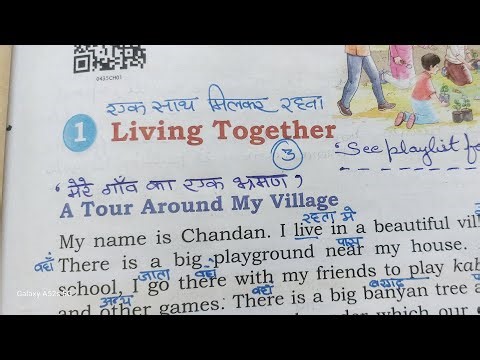 0435CH01
एक साथ मिलकर रहना
1 Living Together
3
"See playlist fo
'मेरे गाँव का एक भ्रमण'
A Tour Around My Village
रहता में
My name is Chandan. I live in a beautiful vill
वहाँ पास
There is a big playground near my house.
जाता वहाँ
school, I go there with my friends to play kab
अन्य वहाँ बरगद
and other games. There is a big banyan tree a
under which our
Galaxy A52